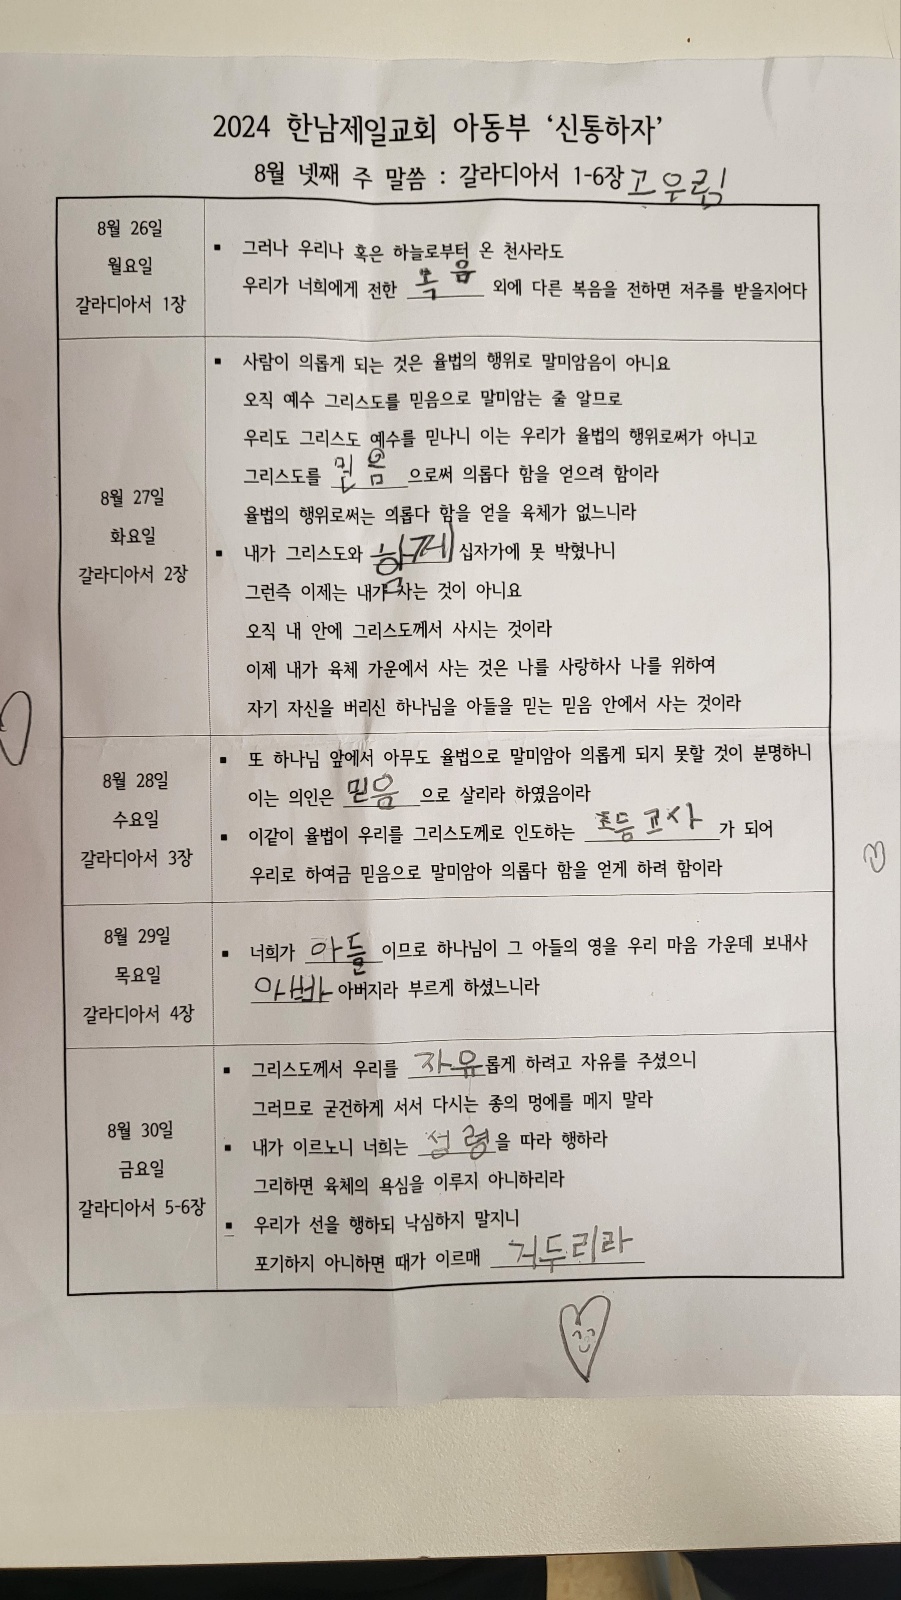 2024 한남제일교회 아동부 ‘신통하자’
8월 넷째 주 말씀 : 갈라디아서 1-6장 고우림
8월 26일
월요일
갈라디아서 1장
▪ 그러나 우리나 혹은 하늘로부터 온 천사라도
우리가 너희에게 전한 복음 외에 다른 복음을 전하면 저주를 받을지어다
8월 27일
화요일
갈라디아서 2장
▪ 사람이 의롭게 되는 것은 율법의 행위로 말미암음이 아니요
오직 예수 그리스도를 믿음으로 말미암는 줄 알므로
우리도 그리스도 예수를 믿나니 이는 우리가 율법의 행위로써가 아니고
그리스도를 믿음 으로써 의롭다 함을 얻으려 함이라
율법의 행위로써는 의롭다 함을 얻을 육체가 없느니라
▪ 내가 그리스도와 함께 십자가에 못 박혔나니
그런즉 이제는 내가 사는 것이 아니요
오직 내 안에 그리스도께서 사시는 것이라
이제 내가 육체 가운에서 사는 것은 나를 사랑하사 나를 위하여
자기 자신을 버리신 하나님을 아들을 믿는 믿음 안에서 사는 것이라
8월 28일
수요일
갈라디아서 3장
▪ 또 하나님 앞에서 아무도 율법으로 말미암아 의롭게 되지 못할 것이 분명하니
이는 의인은 믿음 으로 살리라 하였음이라
▪ 이같이 율법이 우리를 그리스도께로 인도하는 초등교사 가 되어
우리로 하여금 믿음으로 말미암아 의롭다 함을 얻게 하려 함이라
8월 29일
목요일
갈라디아서 4장
▪ 너희가 아들 이므로 하나님이 그 아들의 영을 우리 마음 가운데 보내사
아빠 아버지라 부르게 하셨느니라
8월 30일
금요일
갈라디아서 5-6장
▪ 그리스도께서 우리를 자유 롭게 하려고 자유를 주셨으니
그러므로 굳건하게 서서 다시는 종의 멍에를 메지 말라
▪ 내가 이르노니 너희는 성령 을 따라 행하라
그리하면 육체의 욕심을 이루지 아니하리라
▪ 우리가 선을 행하되 낙심하지 말지니
포기하지 아니하면 때가 이르매 거두리라